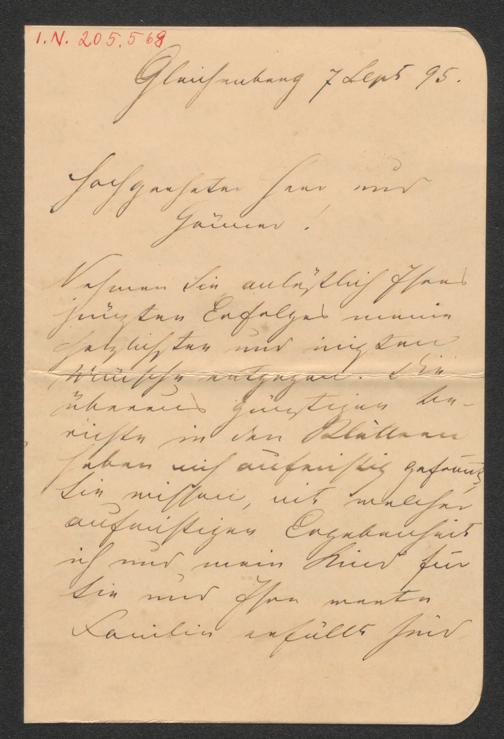 I.N. 205.568
Gleichenberg 7 Sept 95.
Hochgeehrter Herr und
Gönner!
Nehmen Sie anläßlich Ihres
jüngsten Erfolges meine
herzlichsten und innigsten
Wünsche entgegen. Die
überaus günstigen Be-
richte in den Blättern
haben mich aufrichtig gefreut,
Sie wissen, mit welcher
aufrichtigen Ergebenheit
ich und mein Kind für
Sie und Ihre werte
Familie erfüllt sind